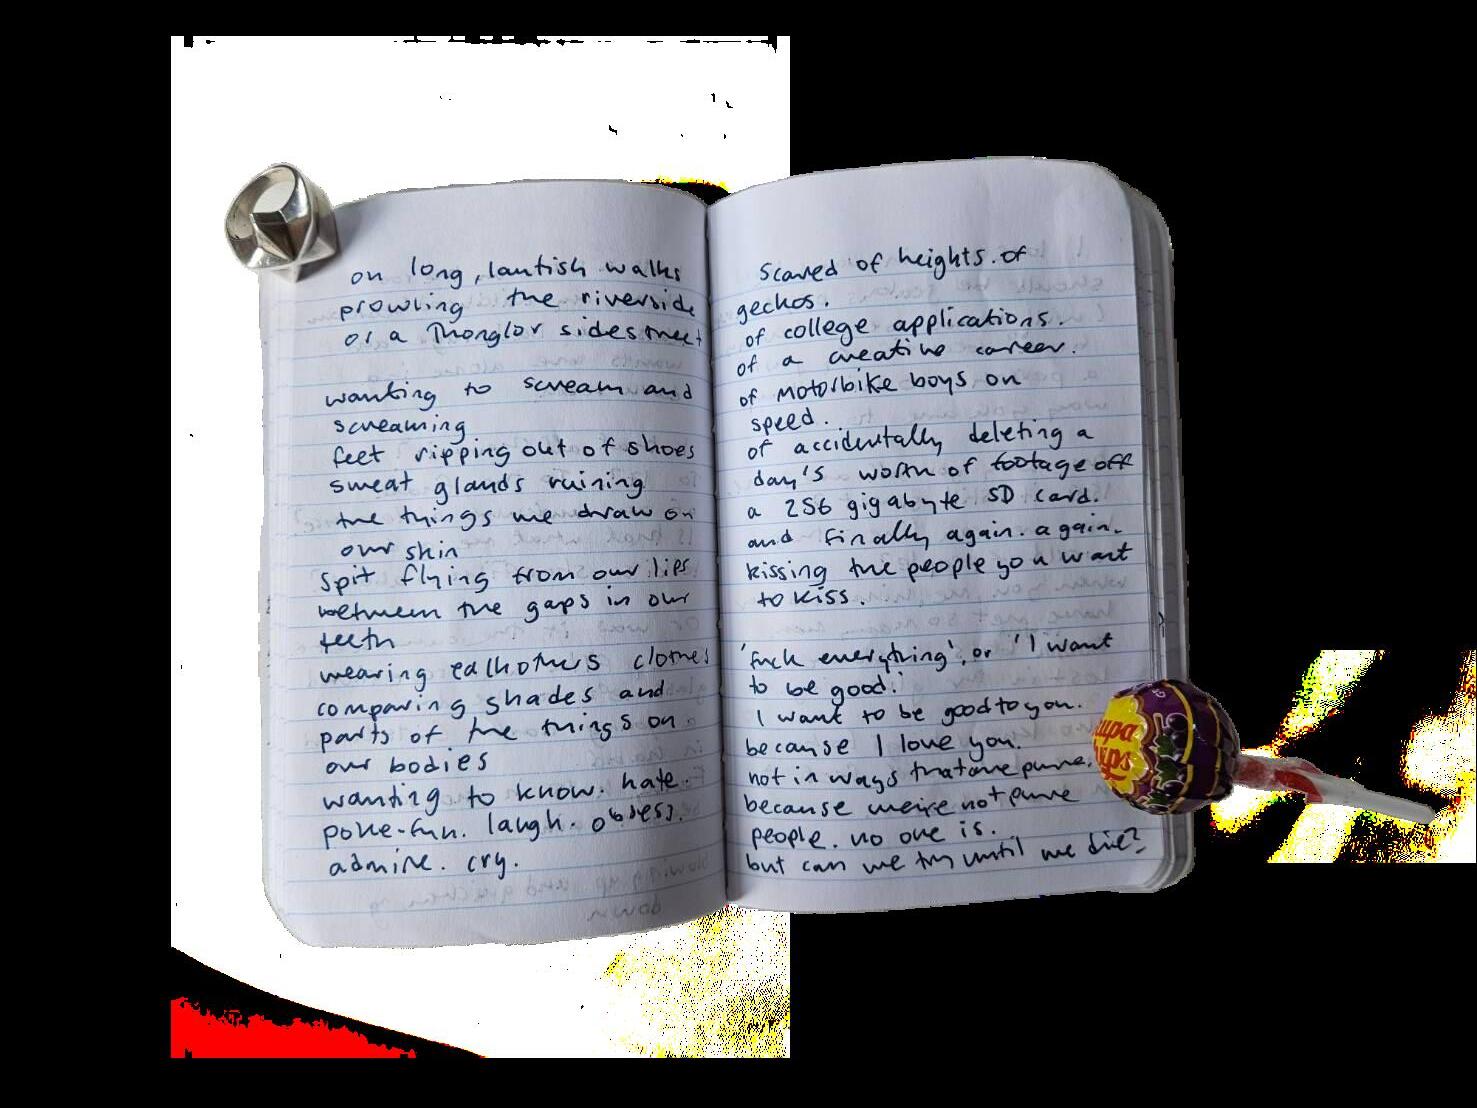 on long, lautish walks
prowling the riverside
or a Thonglor sidestreet
wanting to scream and
screaming
feet ripping out of shoes
sweat glands ruining
the things we draw on
our skin
spit flying from our lips
between the gaps in our
teeth
wearing eachothers clothes
comparing shades and
parts of the things on
our bodies
wanting to know. hate.
poke-fun. laugh. obsess.
admire. cry.
scared of heights. of
geckos.
of college applications.
of a creative career.
of motorbike boys on
speed.
of accidentally deleting a
day's worth of footage off
a 256 gigabyte SD card.
and finally again. again.
kissing the people you want
to kiss.
'fuck everything', or 'I want
to be good.'
I want to be good to you.
because I love you.
not in ways that are pure.
because we're not pure
people. no one is.
but can we try until we die?
Chupa